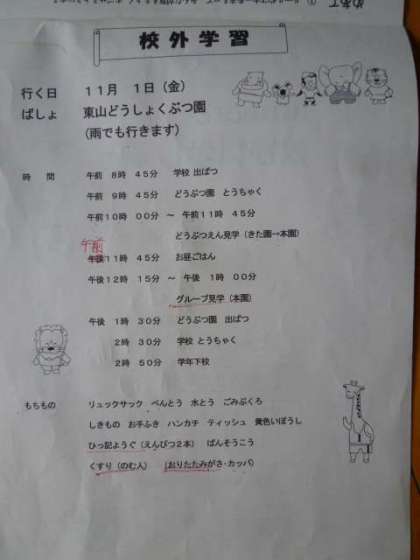 校外学習
行く日　１１月　１日（金）
ばしょ　東山どうしょくぶつ園
（雨でも行きます）
時　間　午前　８時　４５分　学校 出ぱつ
午前　９時　４５分　どうぶつ園　とうちゃく
午前１０時　００分　～　午前１１時　４５分
どうぶつえん見学（きた園→本園）
午前
午後１１時　４５分　お昼ごはん
午後１２時　１５分～　午後　１時　００分
グループ見学（本園）
午後　１時　３０分　どうぶつ園　出ぱつ
２時　３０分　学校 とうちゃく
２時　５０分　学年下校
もちもの　リュックサック　べんとう　水とう　ごみぶくろ
しきもの　お手ふき　ハンカチ　ティッシュ　黄色いぼうし
ひっ記ようぐ（えんぴつ２本）　ばんそうこう
くすり（のむ人）　（おりたたみがさ・カッパ）